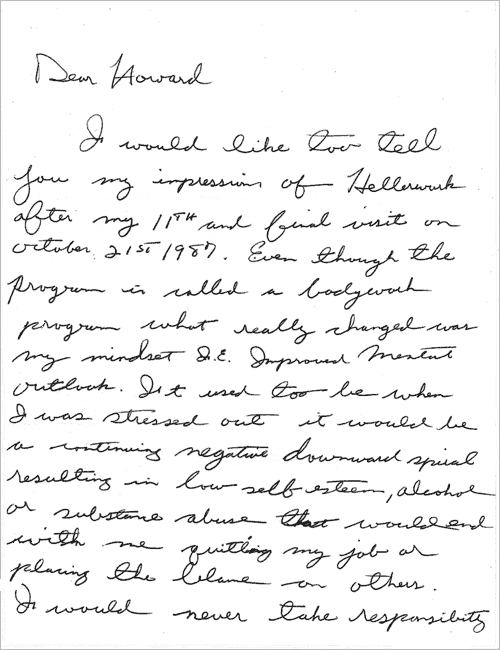 Dear Howard
I would like too tell
you my impressions of Hellerwork
after my 11TH and final visit on
october 21ST 1987. Even though the
program is called a bodywork
program what really changed was
my mindset I.E. Improved Mental
outlook. It used too be when
I was stressed out it would be
a continuing negative downward spiral
resulting in low self esteem, alcohol
or substance abuse that would end
with me quitting my job or
placing the blame on others.
I would never take responsibity